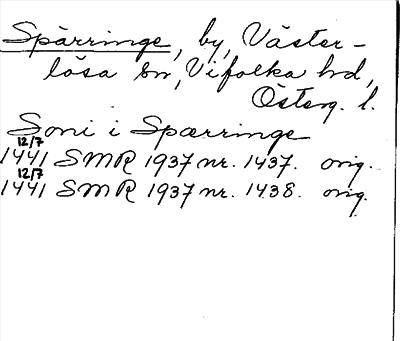 Spärringe, by, Väster-
lösa sn, Vifolka hd,
Österg. l.
Soni i Spærringe
12/7
1441 SMR 1937 nr. 1437. orig.
12/7
1441 SMR 1937 nr. 1438. orig.